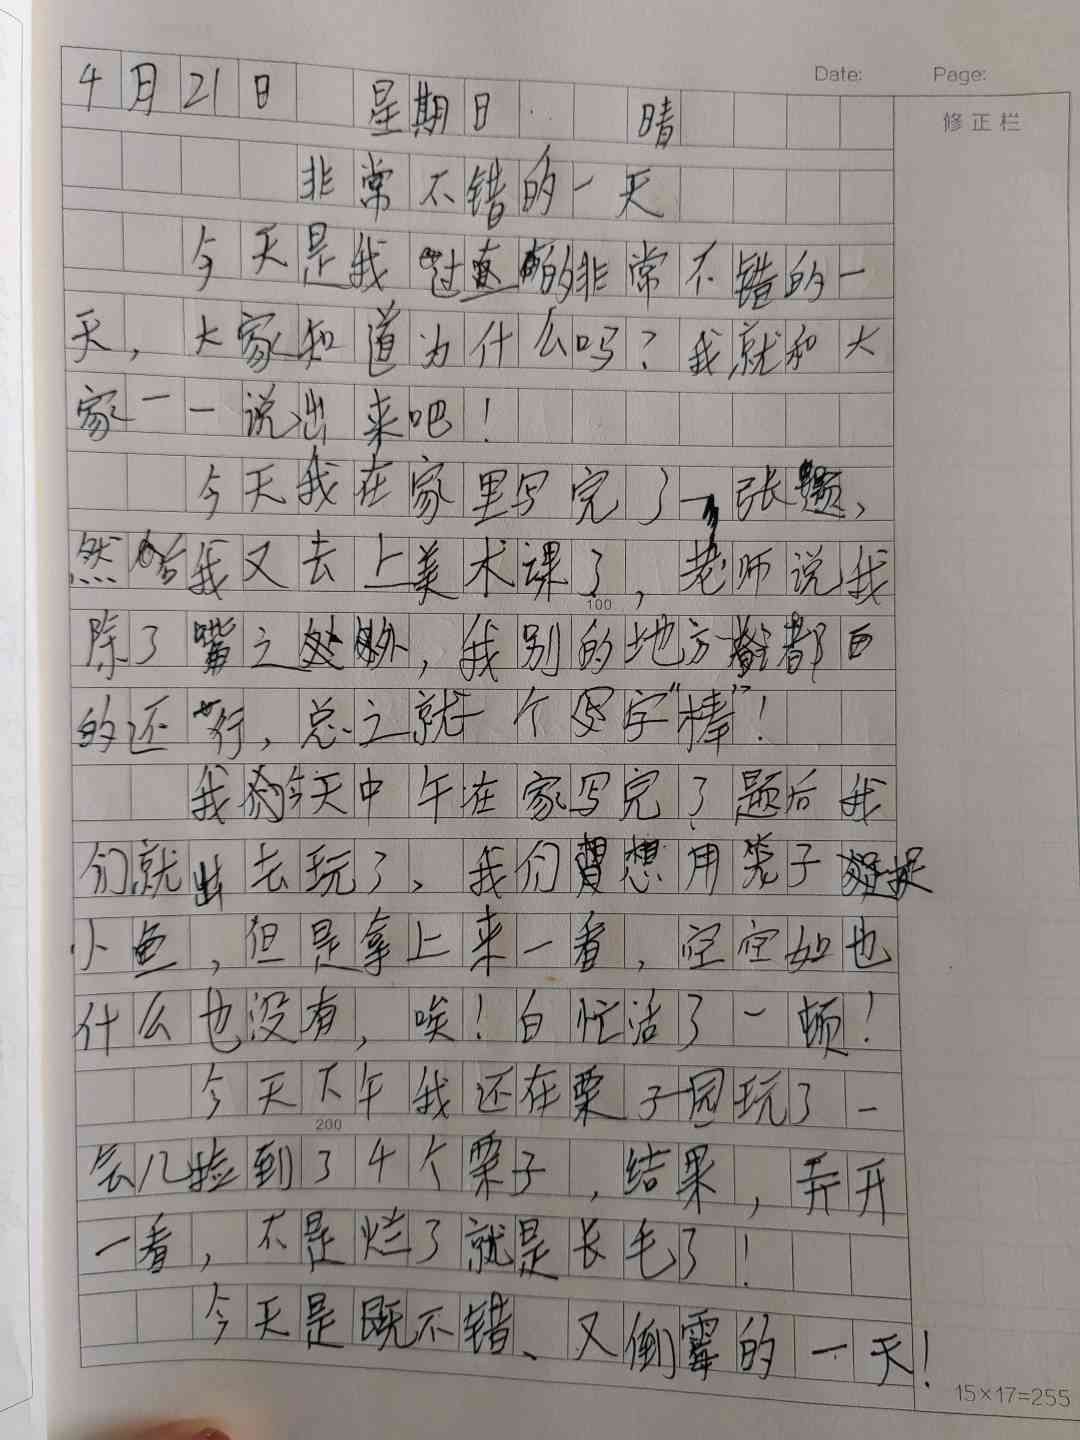 Date: Page:
修正栏
4月21日 星期日 晴
非常不错的一天
今天是我过的非常不错的一
天，大家知道为什么吗？我就和大
家一一说出来吧！
今天我在家里写完了一张题，
然后我又去上美术课了，老师说我
100
除了嘴之外，我别的地方都画
的还行，总之就一个字“棒”！
我今天中午在家写完了题后我
们就出去玩了，我们想用笼子捉
小鱼，但是拿上来一看，空空如也
什么也没有，唉！白忙活了一顿！
今天下午我还在栗子园玩了一
200
会儿捡到了4个栗子，结果，弄开
一看，不是烂了就是长毛了！
今天是既不错、又倒霉的一天！
15×17=255